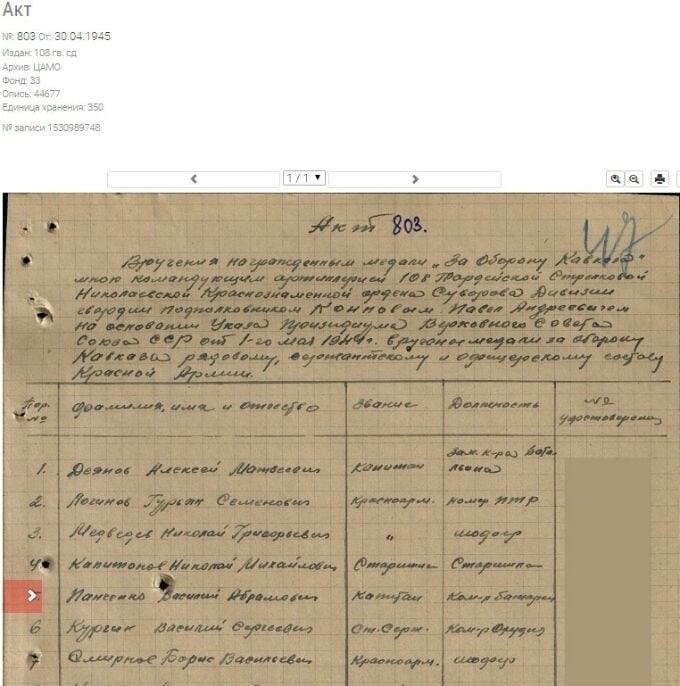 Акт
№: 803 От: 30.04.1945
Издан: 108 гв. сд
Архив: ЦАМО
Фонд: 33
Опись: 44677
Единица хранения: 350
№ записи 1530989748
1 / 1
Акт 803.
47
Вручения награжденным медали „За Оборону Кавказа"
мною командующим артиллерией 108 Гвардейской Стрелковой
Николаевской Краснознаменной ордена Суворова Дивизии
гвардии подполковником Конновым Павел Андреевичем
на основании Указа Президиума Верховного Совета
Союза ССР от 1-го мая 1944г. вручены медали за оборону
Кавказа рядовому, сержантскому и офицерскому составу
Красной Армии.
Пор. №
Фамилия, имя и отчество
Звание
Должность
№ удостоверения
1. Деянов Алексей Матвеевич Капитан Зам. к-ра бата-
льона
2. Логинов Гурьян Семенович Красноарм. номер ПТР
3. Медведев Николай Григорьевич „ шофер
4 Капитонов Николай Михайлович Старшина Старшина
Панченко Василий Абрамович Капитан Ком-р батареи
6 Кургин Василий Сергеевич Ст. Серж. Ком-р Орудия
7 Смирнов Борис Васильевич Красноарм. шофер